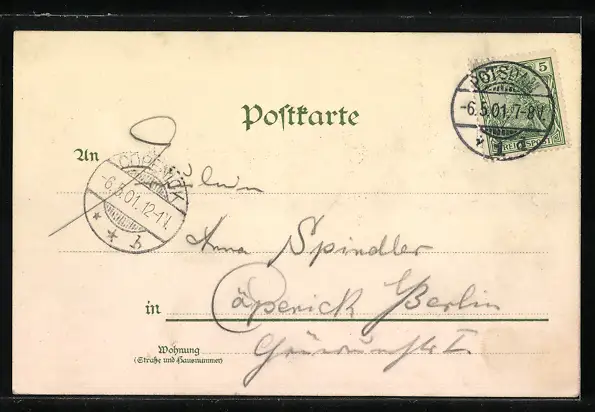 Postkarte
POTSDAM
-6.5.01.7-8V.
5
REICHSPOST
An
CÖPENICK
-6.5.01.12-1N.
* b *
Anna Spindler
in Cöpenick Berlin
Wohnung
(Straße und Hausnummer)